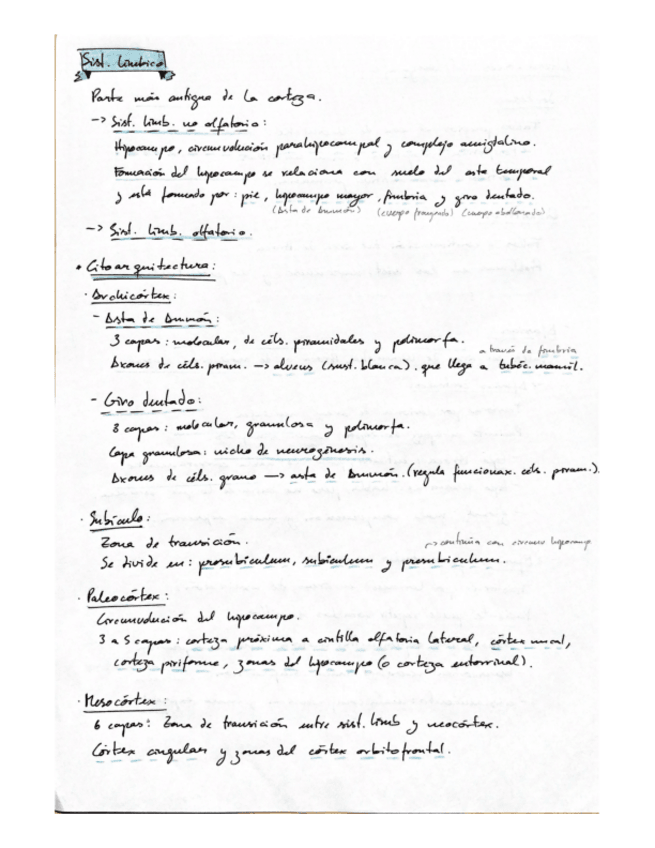 Sist. límbico
Parte más antigua de la corteza.
-> Sist. limb. no olfatorio:
Hipocampo, circunvolución parahipocampal y complejo amigdalino.
Formación del hipocampo se relaciona con suelo del asta temporal
y está formado por: pie, hipocampo mayor, fimbria y giro dentado.
(Asta de Ammón) (cuerpo franjeado) (cuerpo abollonado)
-> Sist. limb. olfatorio.
• Citoarquitectura:
· Archicórtex:
- Asta de Ammón:
3 capas: molecular, de céls. piramidales y polimorfa.
a través de fimbria
Axones de céls. piram. -> alveus (sust. blanca). que llega a tubérc. mamil.
- Giro dentado:
3 capas: molecular, granulosa y polimorfa.
Capa granulosa: nicho de neurogénesis.
Axones de céls. grano -> asta de Ammón. (regula funcionax. céls. piram.).
· Subículo:
Zona de transición.
-> continúa con circunv hipocamp
Se divide en: prosubiculum, subiculum y presubiculum.
· Paleocórtex:
Circunvolución del hipocampo.
3 a 5 capas: corteza próxima a cintilla olfatoria lateral, córtex uncal,
corteza piriforme, zonas del hipocampo (o corteza entorrinal).
· Mesocórtex:
6 capas: Zona de transición entre sist. limb y neocórtex.
Córtex cingular y zonas del córtex orbitofrontal.